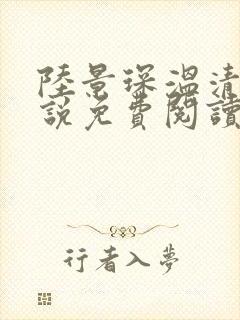 陸景琛溫清
說免費閱讀
行者入夢